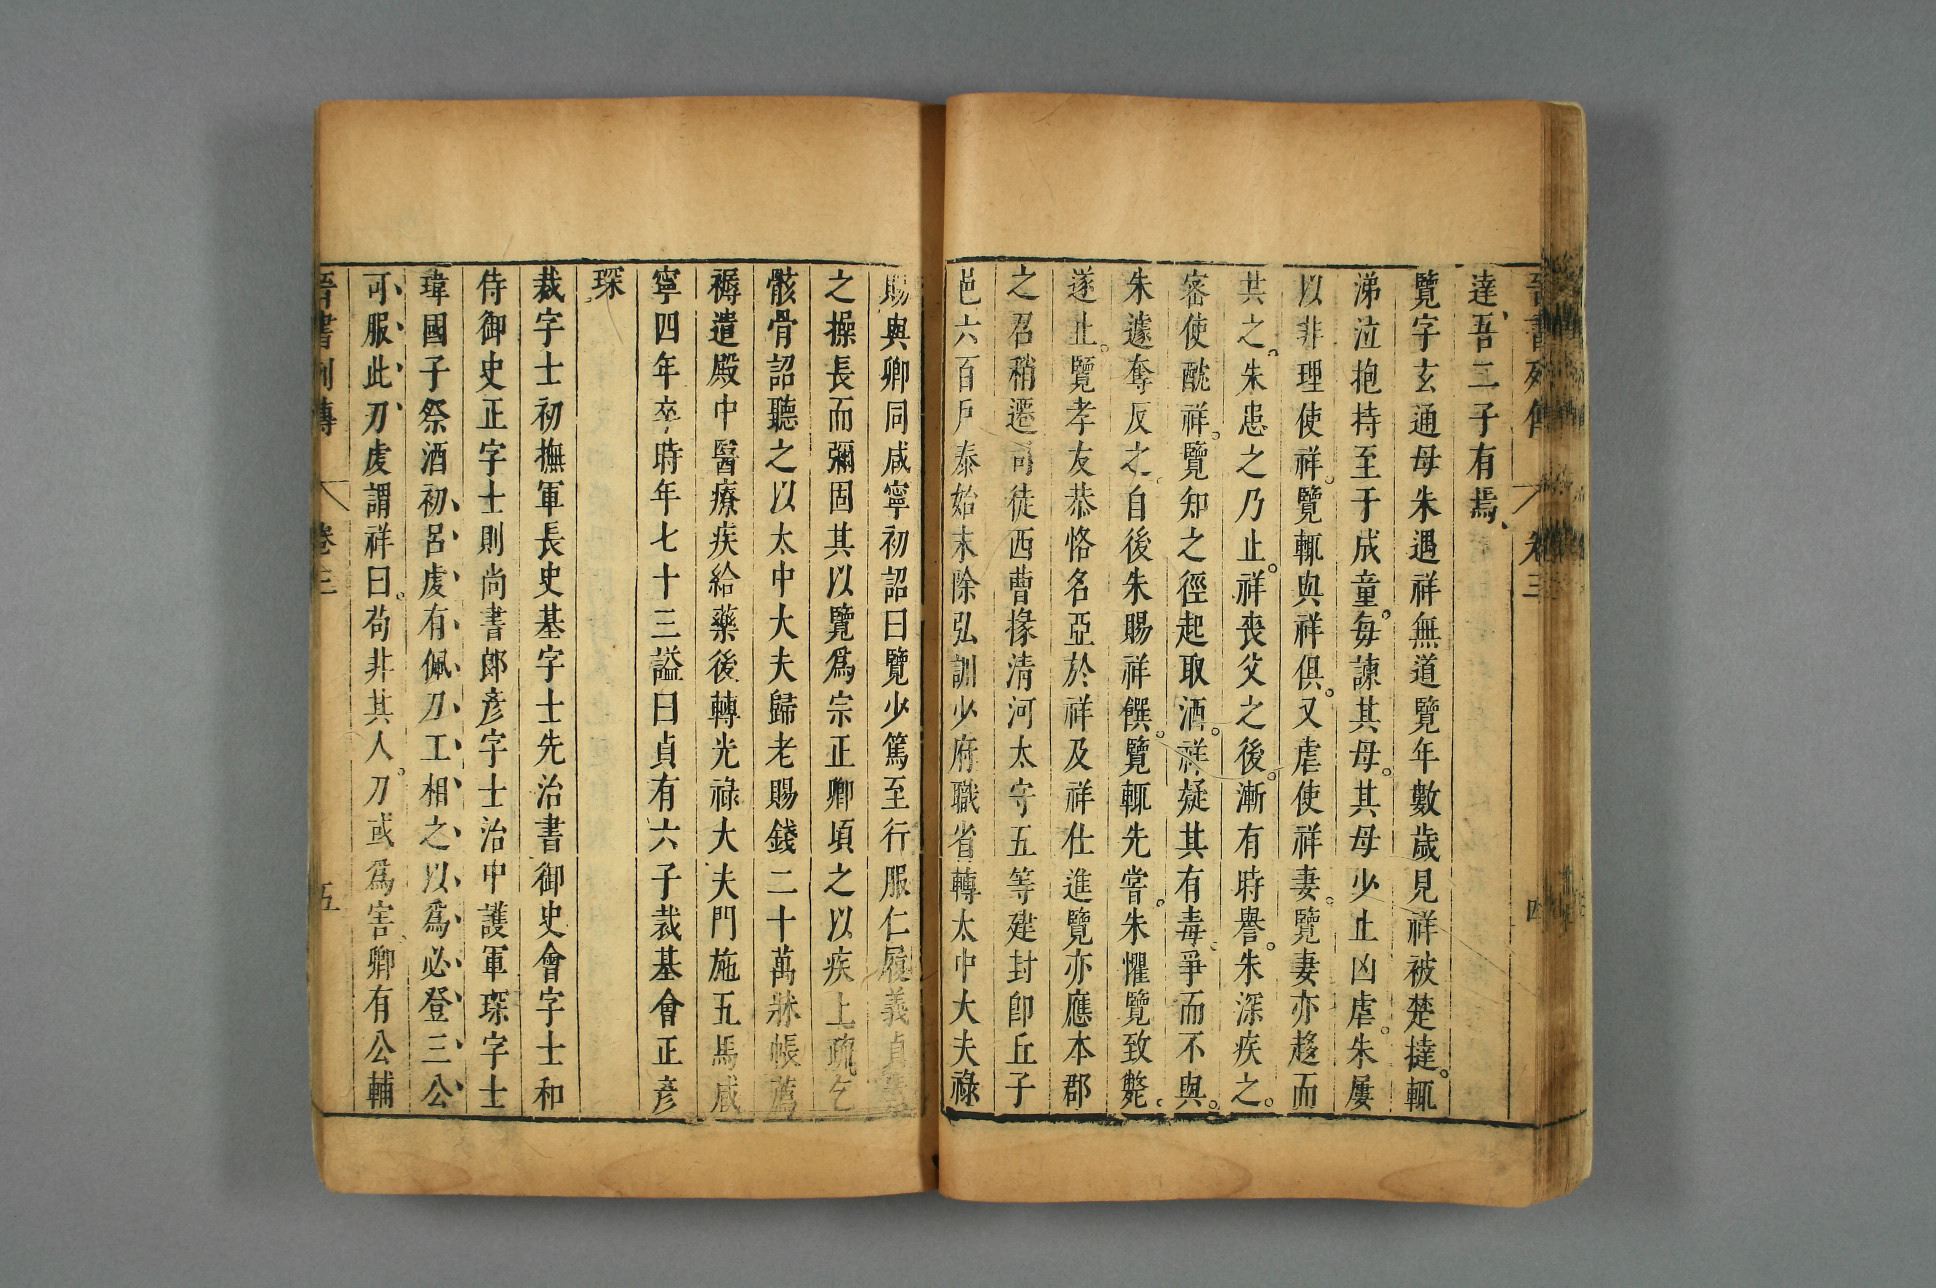 晉書列傳 卷三 四
達吾二子有焉
覽字玄通母朱遇祥無道覽年數歲見祥被楚撻輒
涕泣抱持至于成童每諫其母其母少止凶虐朱屢
以非理使祥覽輒與祥俱又虐使祥妻覽妻亦趍而
共之朱患之乃止祥喪父之後漸有時譽朱深疾之
密使酖祥覽知之徑起取酒祥疑其有毒爭而不與
朱遽奪反之自後朱賜祥饌覽輒先嘗朱懼覽致斃
遂止覽孝友恭恪名亞於祥及祥仕進覽亦應本郡
之召稍遷司徒西曹掾清河太守五等建封卽丘子
邑六百戶泰始末除弘訓少府職省轉太中大夫祿
賜與卿同咸寧初詔曰覽少篤至行服仁履義貞素
之操長而彌固其以覽爲宗正卿頃之以疾上疏乞
骸骨詔聽之以太中大夫歸老賜錢二十萬牀帳薦
褥遣殿中醫療疾給藥後轉光祿大夫門施五馬咸
寧四年卒時年七十三謚曰貞有六子裁基會正彥
琛
裁字士初撫軍長史基字士先治書御史會字士和
侍御史正字士則尚書郎彥字士治中護軍琛字士
瑋國子祭酒初呂虔有佩刀工相之以爲必登三公
可服此刀虔謂祥曰苟非其人刀或爲害卿有公輔
晉書列傳 卷三 五